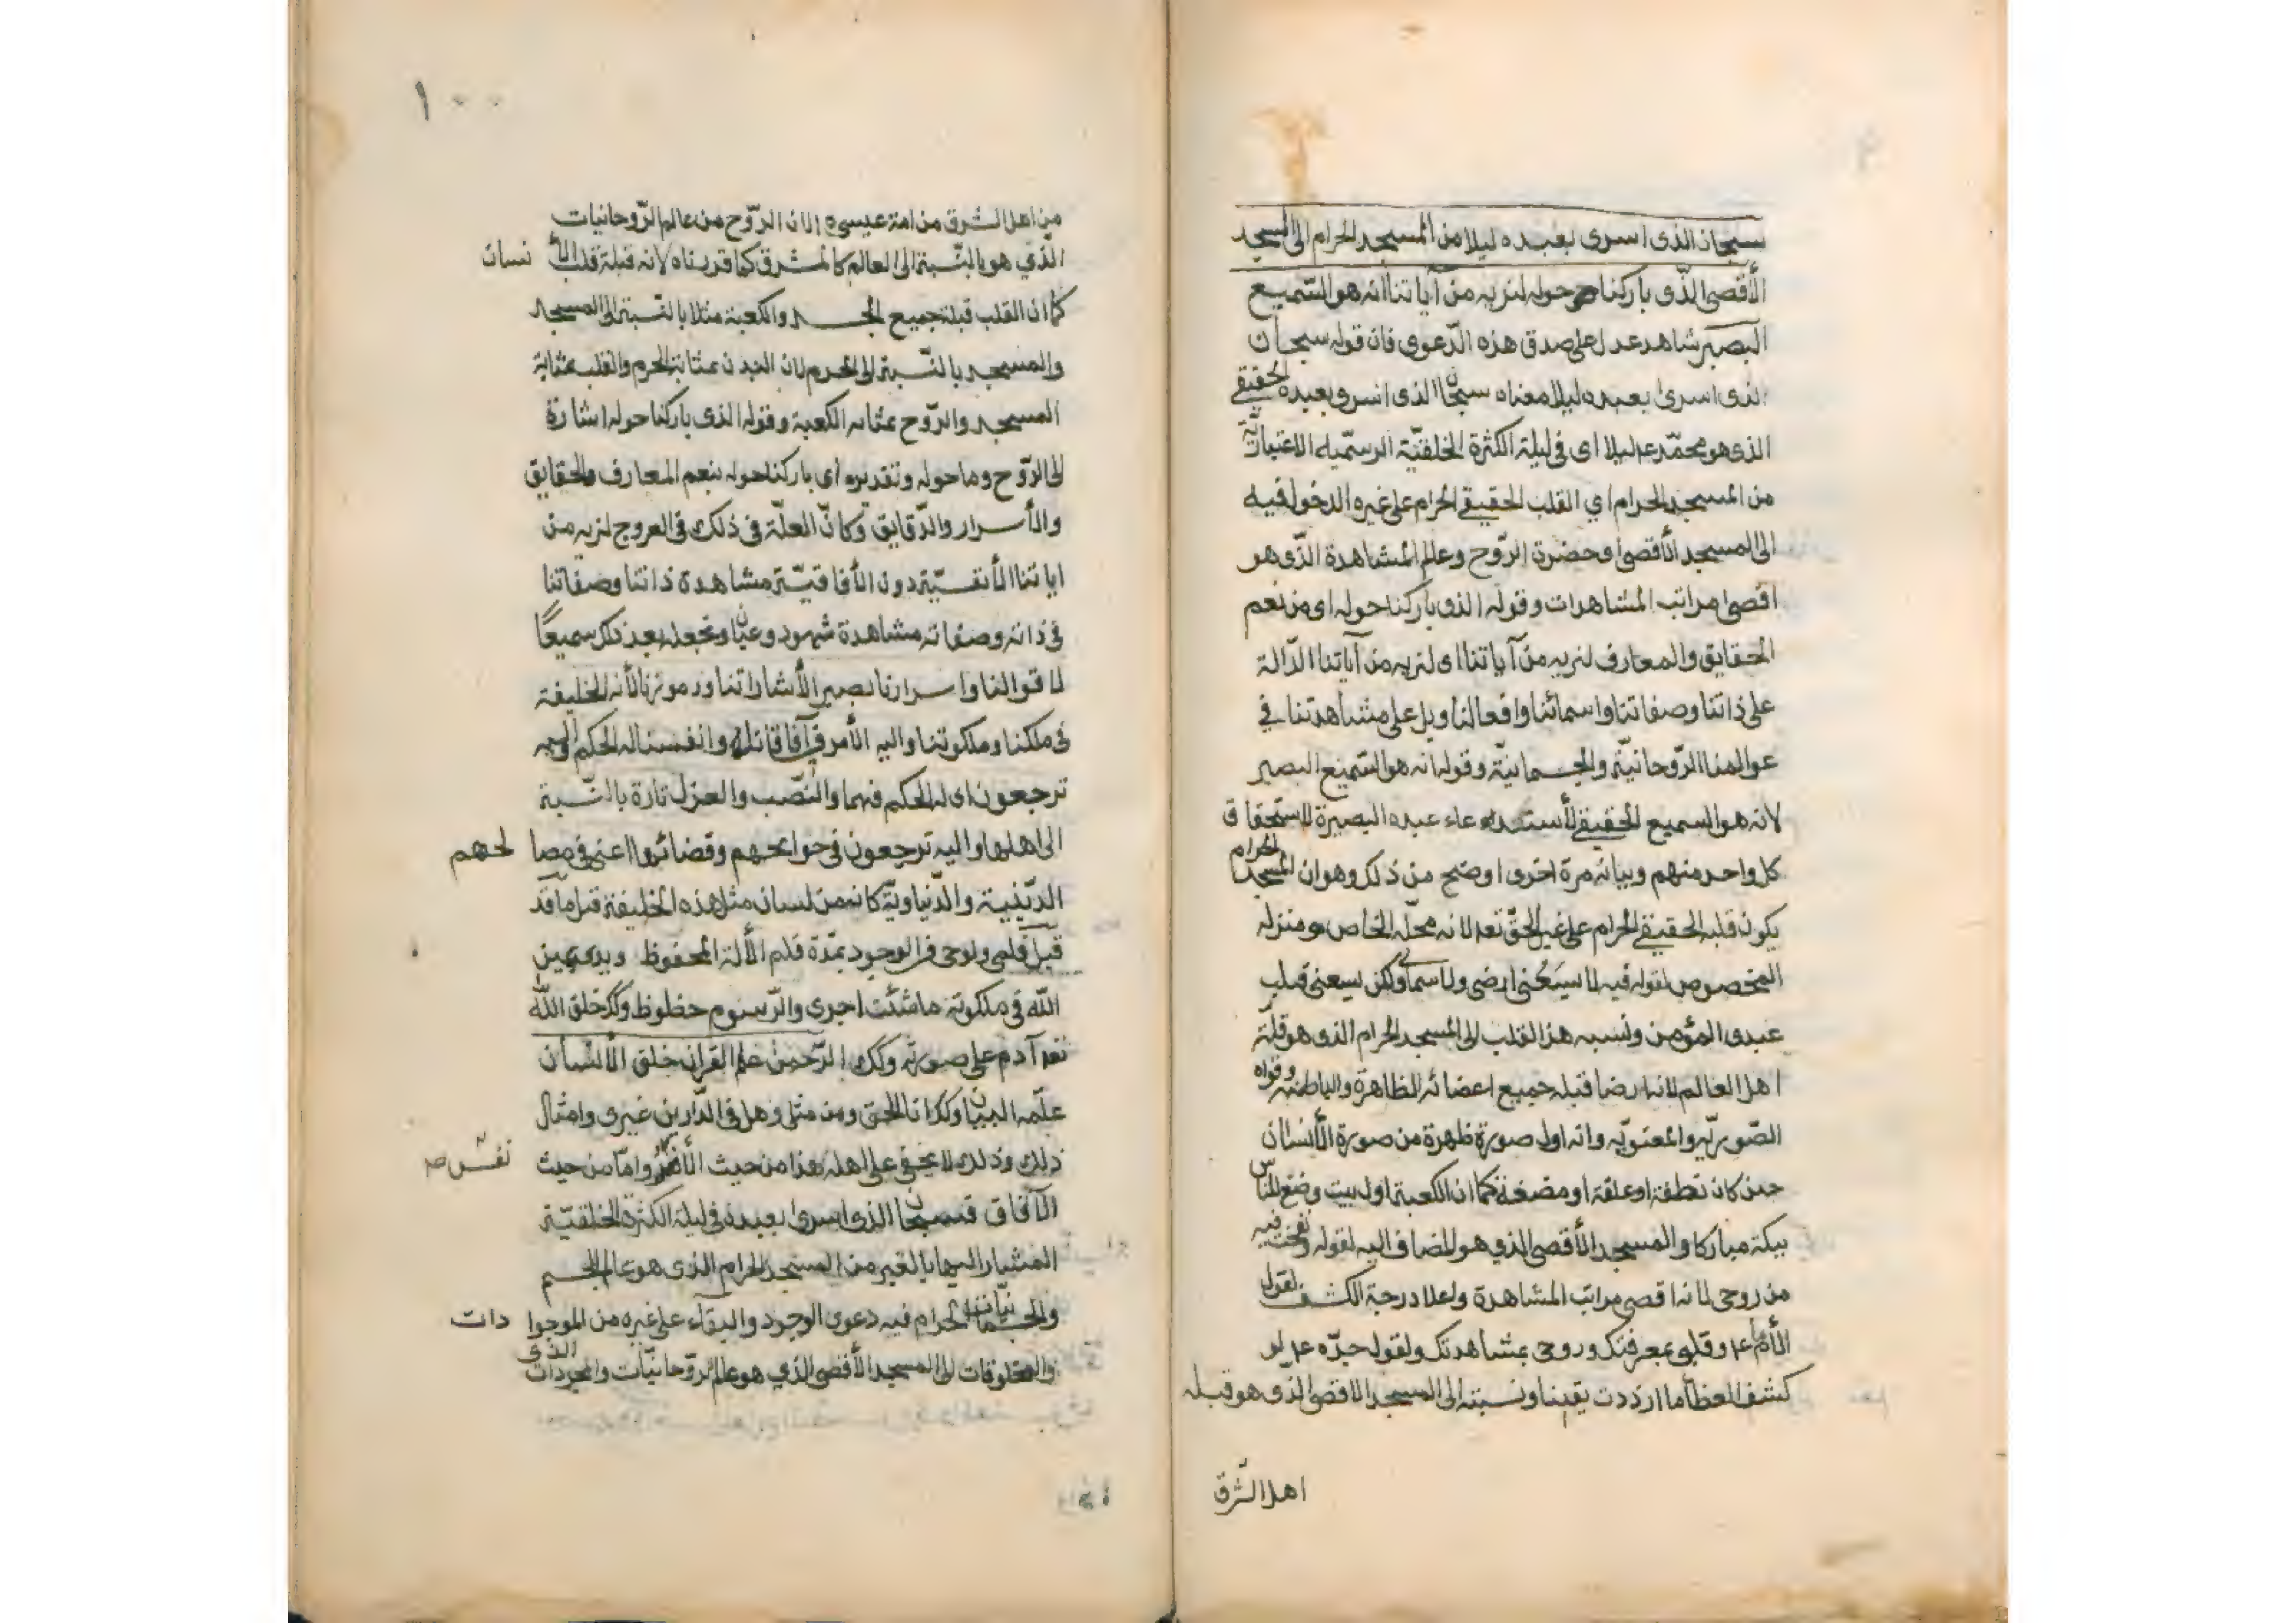 سبحان الذى اسرى بعبده ليلا من المسجد الحرام الى المسجد
الأقصى الذّى باركنا حوله لنريه من آياتنا انه هو السّميع
البصير شاهد عدل على صدق هذه الدّعوى فان قوله سبحان
الذى اسرى بعبده ليلا معناه سبحان الذى اسرى بعبده الحقيقي
الذى هو محمّد عم ليلا اى فى ليلة الكثرة الخلقيّة الرسميّه الاعتباريّة
من المسجد الحرام اي القلب الحقيقي الحرام على غيره الدخول فيه
الى المسجد الأقصى اى حضرة الرّوح وعالم المشاهدة الذّى هو
اقصى مراتب المشاهدات وقوله الذى باركنا حوله اى من نعم
الحقايق والمعارف لنريه من آياتنا اى لنريه من آياتنا الدّالة
على ذاتنا وصفاتنا واسمائنا وافعالنا وبل على مشاهدتنا في
عوالمنا الرّوحانيّة والجسمانيّة وقوله انه هو السّميع البصير
لانه هو السميع الحقيقي دعاء عبده البصيرة لاستحقاق
كل واحد منهم وبيانه مرة اخرى اوضح من ذلك وهو ان المسجد الحرام
يكون قلبه الحقيقي الحرام على غير الحقّ تعه لانه محلّه الخاص ومنزله
المخصوص لقوله فيه لا يسعنى ارضى ولا سمائى ولكن يسعنى قلب
عبدى المؤمن ونسبه هذا القلب الى المسجد الحرام الذى هو قبلة
اهل العالم لانه ارضا قبله جميع اعضائه الظاهرة والباطنة وقواه
الصّوريّه والمعنويّه وانه اول صورة ظهرة من صورة الأنسان
حين كان نطفة او علقة او مضغة كما ان الكعبة اول بيت وضع للنّاس
ببكة مباركا والمسجد الأقصى الذي هو المضاف اليه لقوله ونفخت فيه
من روحى لانه اقصى مراتب المشاهدة واعلا درجة الكشف لقول
الأمام عم وقلبى بمعرفتك وروحى بمشاهدتك ولقول جدّه عم لو
كشف الغطأ ما ازددت يقينا ونسبته الى المسجد الاقصى الذى هو قبله
اهل الشّرق
١٠٠
من اهل الشرق من امة عيسى الان الرّوح من عالم الرّوحانيات
الذّي هو بالنّسبة الى العالم كالمشرق كما قررناه لانه قبلة قلب الأنسان
كما ان القلب قبلة جميع الجسد والكعبة مثلا بالنّسبة الى المسجد
والمسجد بالنّسبة الى الحرم لان البدن بمثابة الحرم والقلب بمثابة
المسجد والرّوح بمثابه الكعبة وقوله الذى باركنا حوله اشارة
الى الرّوح وما حوله وتقديره اى باركنا حوله بنعم المعارف والحقايق
والأسرار والدّقايق وكانّ العلّة فى ذلك فى العروج لنريه من
اياتنا الأنفسيّة دون الأفاقيّة مشاهدة ذاتنا وصفاتنا
فى ذاته وصفاته مشاهدة شهود وعيان ونجعله بعد ذلك سميعًا
لاقوالنا واسرارنا بصير الأشاراتنا ورموزنا لأنه الخليفة
فى ملكنا وملكوتنا واليه الأمر فى آفاقنا وانفسنا له الحكم واليه
ترجعون اى له الحكم فيهما والنّصب والعزل تارة بالنّسبة
الى اهلها واليه ترجعون فى حوائجهم وقضائها اعنى فى مصالحهم
الدّينية والدّنياويّة كانه من لسان مثل هذه الخليفة قبل ما قد
قبل قلمى ولوحى فى الوجود يمدّه قلم الأله المحفوظ ويدى يمين
اللّه فى ملكوته ما شئت اجرى والرّسوم حظوظ وكك خلق اللّه
تعه آدم على صورته وكك الرّحمن علم القران خلق الأنسان
علّمه البيان وكك انا الحق ومن مثلى وهل فى الدّارين غيرى وامثال
ذلك وذلك لا يخفى على اهله هذا من حيث الأنفس وامّا من حيث
الآفاق فسبحان الذى اسرى بعبده فى ليلة الكثرة الخلقيّة
المشار اليها بالغير من المسجد الحرام الذى هو عالم الجسم
والجسمانيّات الحرام فيه دعوى الوجود والبقاء على غيره من الموجودات
والمخلوقات الى المسجد الأقصى الذي هو عالم الرّوحانيّات والمجردات الذى